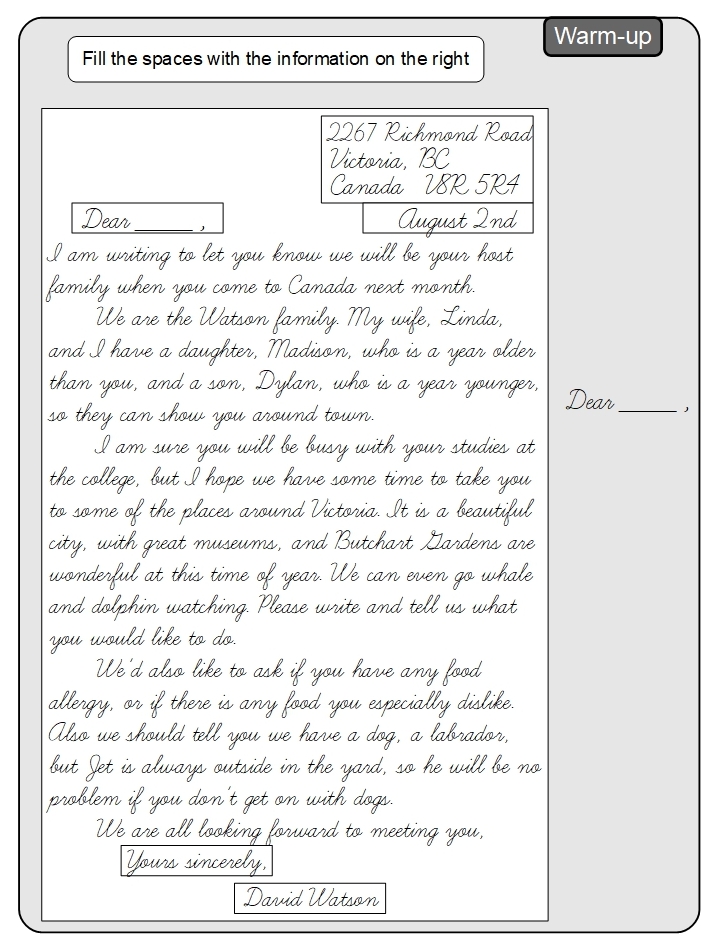 Warm-up
Fill the spaces with the information on the right
2267 Richmond Road
Victoria, BC
Canada V8R 5R4
Dear ______ ,
August 2nd
I am writing to let you know we will be your host
family when you come to Canada next month.
We are the Watson family. My wife, Linda,
and I have a daughter, Madison, who is a year older
than you, and a son, Dylan, who is a year younger,
so they can show you around town.
I am sure you will be busy with your studies at
the college, but I hope we have some time to take you
to some of the places around Victoria. It is a beautiful
city, with great museums, and Butchart Gardens are
wonderful at this time of year. We can even go whale
and dolphin watching. Please write and tell us what
you would like to do.
We'd also like to ask if you have any food
allergy, or if there is any food you especially dislike.
Also we should tell you we have a dog, a labrador,
but Jet is always outside in the yard, so he will be no
problem if you don't get on with dogs.
We are all looking forward to meeting you,
Yours sincerely,
David Watson
Dear ______ ,